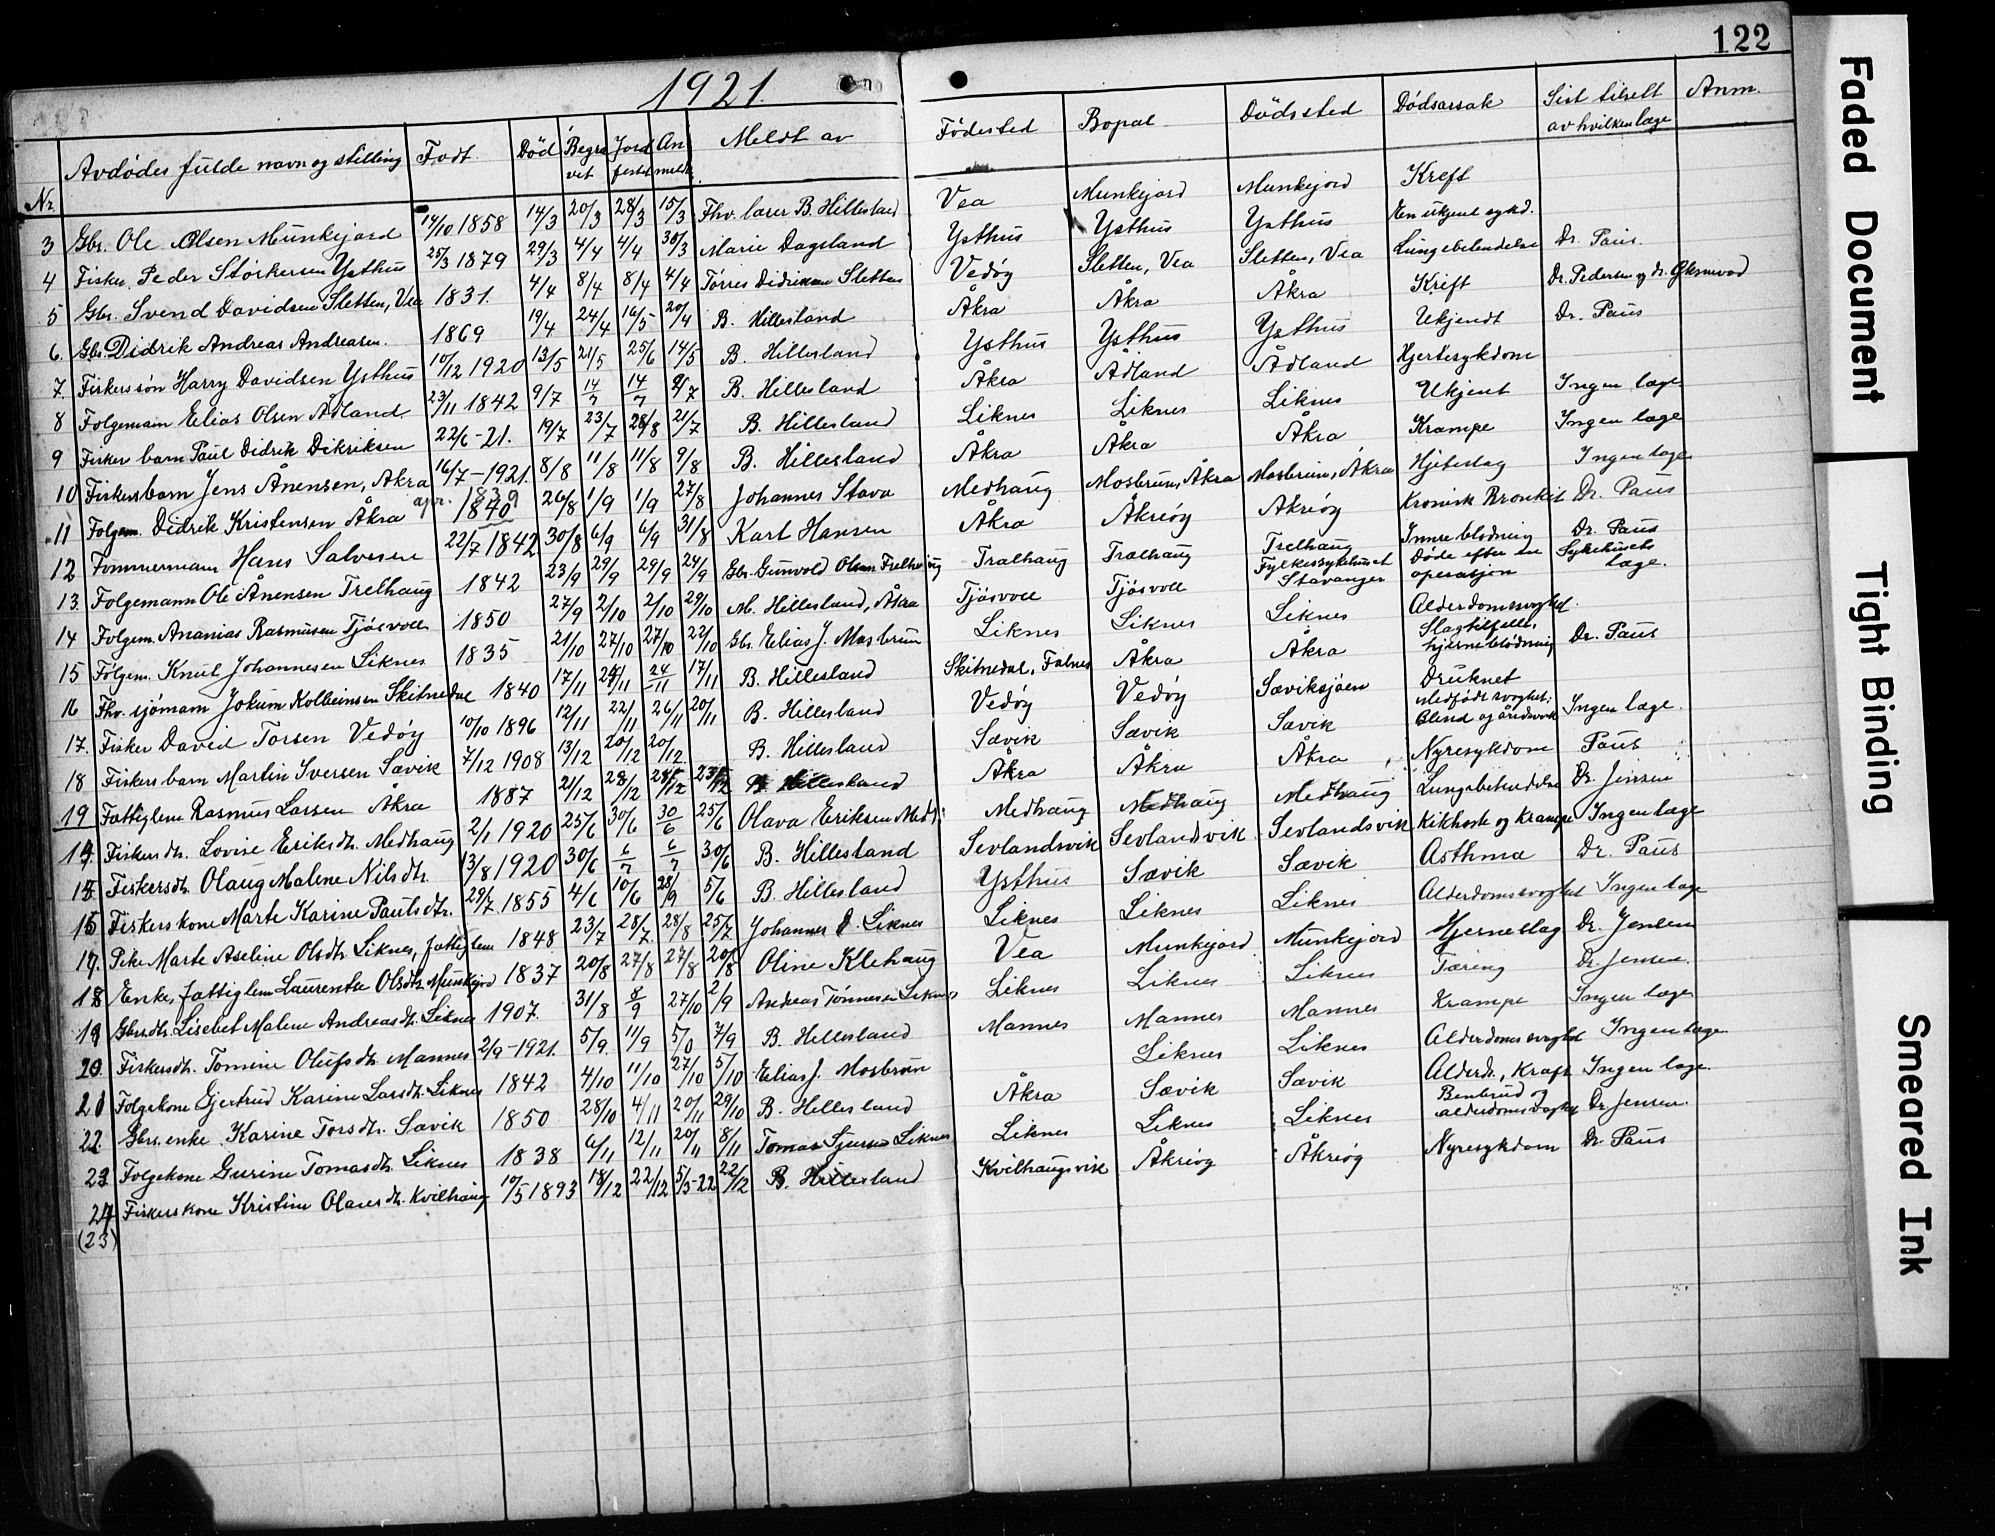 122
1921.
Nr. Avdødes fulde navn og stilling Født. Død Begravet Jordfestet Anmeldt Meldt av Fødested Bopæl Dödssted Dødsarsak Sist tilsett av hvilken læge Anm.
3 Gbr. Ole Olsen Munkejord 14/10 1858 14/3 20/3 28/3 15/3 Fhv. lærer B. Hillesland Vea Munkejord Munkejord Kreft
4 Fisker Peder Størkersen Ysthus 25/3 1879 29/3 4/4 4/4 30/3 Marie Dagsland Ysthus Ysthus Ysthus En ukjent sykd.
5 Gbr. Svend Davidsen Sletten, Vea 1831. 4/4 8/4 8/4 4/4 Tørres Didriksen Sletten Vedöy Sletten, Vea Sletten, Vea Lungebetendelse Dr. Paus.
6. Gbr. Didrik Andreas Andreasen. 1869 19/4 24/4 16/5 20/4 B. Hillesland Åkra Åkra Åkra Kreft Dr. Pedersen og dr.
7. Fiskerssøn Harry Davidsen Ysthus 10/12 1920 13/5 21/5 25/6 14/5 B. Hillesland Ysthus Ysthus Ysthus Ukjendt Dr. Paus
8 Folgemann Elias Olsen Ådland. 23/11 1842 9/7 14/7 14/7 9/7 B. Hillesland Åkra Ådland Ådland Hjertesykdom
9 Fisker barn Paul Didrik Dikriksen 22/6-21. 19/7 23/7 28/8 21/7 B. Hillesland Liknes Liknes Liknes Ukjent Ingen læge
10 Fiskersbarn Jens Ånensen, Åkra 16/7-1921. 8/8 11/8 11/8 9/8 B. Hillesland Åkra Åkra Åkra Krampe Ingen læge
11 Folgem. Didrik Kristensen Åkra apr. 1839 1840 26/8 1/9 1/9 27/8 Johannes Stava Medhaug Mosbrun, Åkra Mosbrun, Åkra Hjerteslag Ingen læge
12 Tømmermann Hans Salvesen 22/7 1842 30/8 6/9 6/9 31/8 Karl Hansen Åkra Åkreöy Åkreöy Kronisk Bronkit Dr. Paus
13. Folgemann Ole Ånensen Trelhaug 1842 23/9 29/9 29/9 24/9 Gbr. Gunvald Olsen Trelhaug Trælhaug Trælhaug Trelhaug Innre blødning Dr. Paus
14 Folgem. Ananias Rasmusen Tjösvoll 1850 27/9 2/10 2/10 29/10 M. Hillesland, Åkra Tjösvoll Tjösvoll Fylkessykehuset Stavanger Døde efter en operasjon Sykehusets læge.
15 Folgem. Knut Johannesen Liknes 1835 21/10 27/10 27/10 22/10 Gbr. Elias J. Mosbrun Liknes Liknes Liknes Alderdomssvaghet.
16 Fhv. sjömann Jokum Kolbeinsen Skitnedal 1840 17/11 24/11 24/11 17/11 B. Hillesland Skitnedal, Falnes Åkra Åkra Slagtilfelle, hjerneblödning Dr. Paus
17. Fisker David Torsen Vedöy 10/10 1896 12/11 22/11 26/11 20/11 B. Hillesland Vedöy Vedöy Sæviksjöen Druknet
18 Fiskers barn Martin Iversen Sævik 7/12 1908 13/12 20/12 20/12 B. Hillesland Sævik Sævik Sævik Medfödt svaghet; Blind og åndssvak Ingen læge.
19 Fattiglem Rasmus Larsen Åkra 1887 21/12 28/12 28/12 23/12 B Hillesland Åkra Åkra Åkra Nyresykdom Paus
14. Fiskersdt. Lovise Eriksdt. Medhaug 2/1 1920 25/6 30/6 30/6 25/6 Olava Eriksen Medh: Medhaug Medhaug Medhaug Lungebetendelse Dr. Jensen
15. Fiskersdt. Olaug Malene Nilsdt. 13/8 1920 30/6 6/7 6/7 30/6 B. Hillesland Sevlandsvik Sevlandsvik Sevlandsvik Kikhoste og Krampe Ingen læge
16 Fiskerskone Marte Karine Paulsdtr. 29/7 1855 4/6 10/6 28/9 5/6 B. Hillesland Ysthus Sævik Sævik Asthma Dr. Paus
17. Pike Marte Aseline Olsdt. Liknes, fattiglem 1848 23/7 28/7. 28/8 25/7 Johannes D. Liknes Liknes Liknes Liknes Alderdomssvaghet Ingen læge
18 Enke, fattiglem Laurentse Olsdt. Munkejord 1837 20/8 27/8 27/8 20/8 Oline Klehaug Vea Munkejord Munkejord Hjerneslag Dr. Jensen
19 Gbrsdt. Lisebet Malene Andreasdt. Liknes 1907. 31/8 8/9 27/10 2/9 Andreas Tønnesen Liknes Liknes Liknes Liknes Tæring Dr. Jensen.
20. Fiskersdt. Tomine Olufsdt. Mannes 2/9-1921. 5/9. 11/9 5/0 7/9 B. Hillesland Mannes Mannes Mannes Krampe Ingen læge
21 Folgekone Gjertrud Karine Larsdt. Liknes 1842 4/10 11/10 27/10 5/10 Elias J. Mosbrun Liknes Liknes Alderdomssvaghet Ingen læge
22 Gbrs. enke Karine Torsdt. Sævik 1850 28/10 4/11 20/11 29/10 B. Hillesland Åkra Sævik Sævik Alderd., Kraft Ingen læge.
23 Folgekone Gurine Tomasdt. Liknes 1838 6/11 12/11 20/11 8/11 Tomas Liknes Liknes Liknes Liknes Benbrud og alderdomssvaghet Dr. Jensen.
24 Fiskerskone Kristine Olavesdt. Kvilhaug 10/5 1893 18/12 22/12 5/3-22 22/12 B. Hillesland Kvilhaugsvik Åkreöy Åkreöy Nyresykdom Dr. Paus
(23)
Faded Document
Tight Binding
Smeared Ink